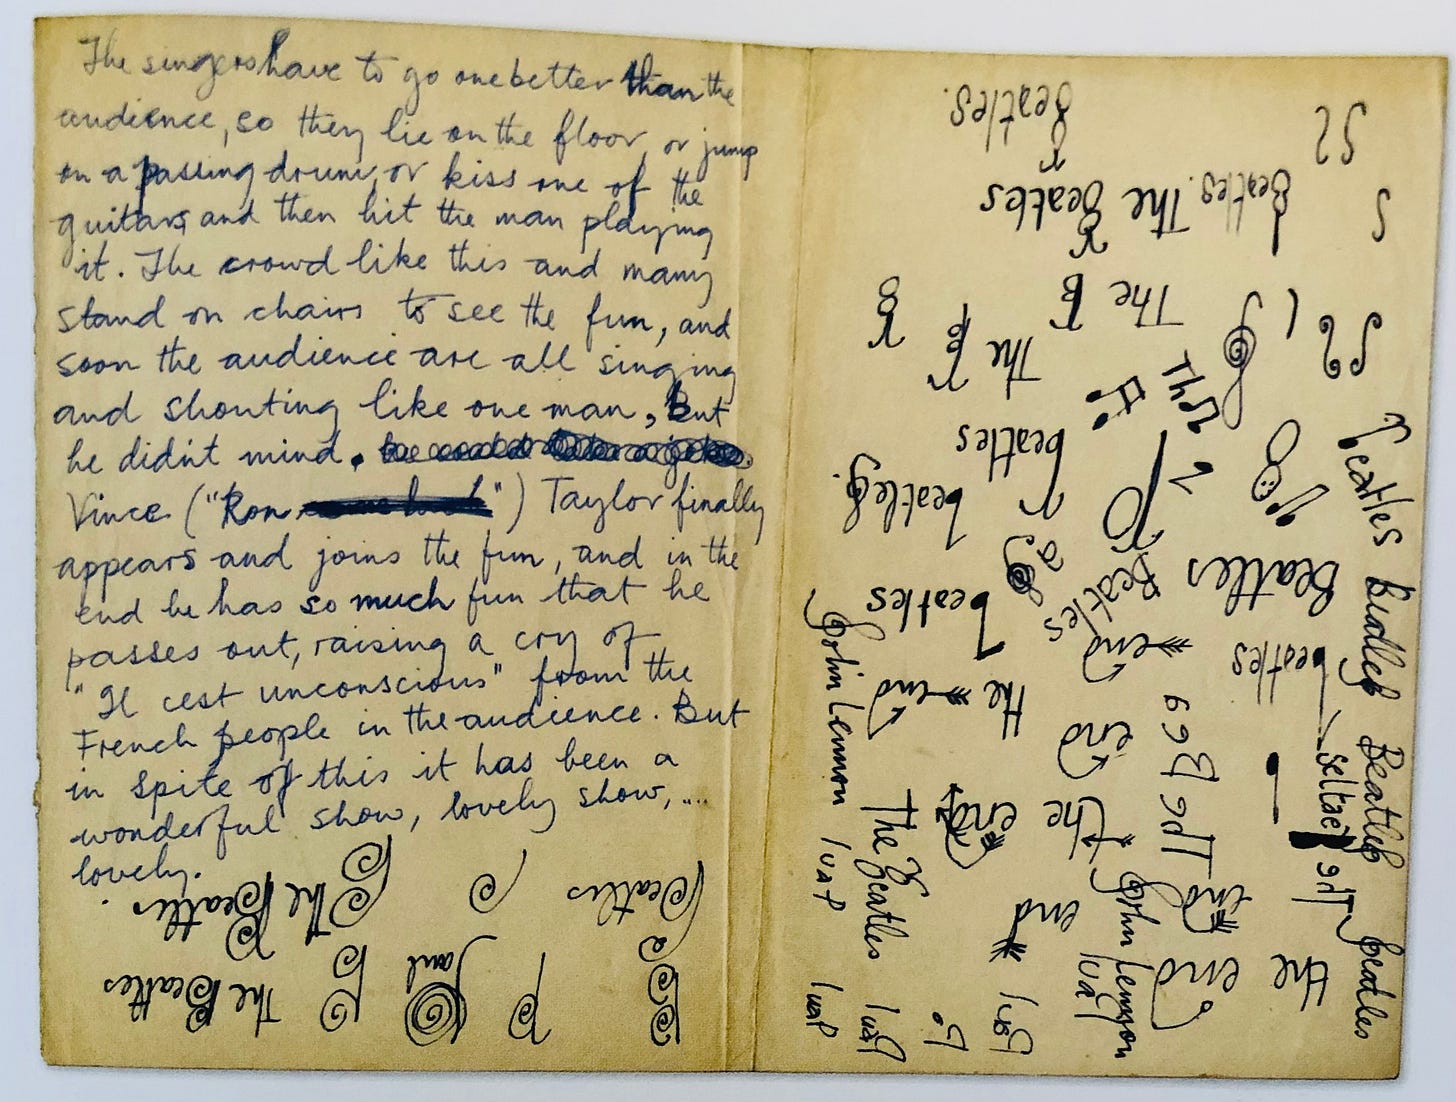 The singers have to go one better than the
audience, so they lie on the floor, or jump
on a passing drum, or kiss one of the
guitars, and then hit the man playing
it. The crowd like this and many
stand on chairs to see the fun, and
soon the audience are all singing
and shouting like one man, But
he didn't mind.
Vince ("Ron") Taylor finally
appears and joins the fun, and in the
end he has so much fun that he
passes out, raising a cry of
"Il cest unconscious" from the
French people in the audience. But
in spite of this it has been a
wonderful show, lovely show, ....
lovely.
Beatles
The Beatles.
Paul
The Beatles
Beatles.
Beatles. The Beatles
The B
The B
The
beatles
beatles.
Beatles
beatles
Beatles
Beatles
beatles
the end
end
the end
the end
end
end
end
the end
John Lennon
Ivan
The Beatles
Ivan
Ivan
Ivan
John Lennon
Ivan
Beatles
Beatles
Beatles
seltaeb